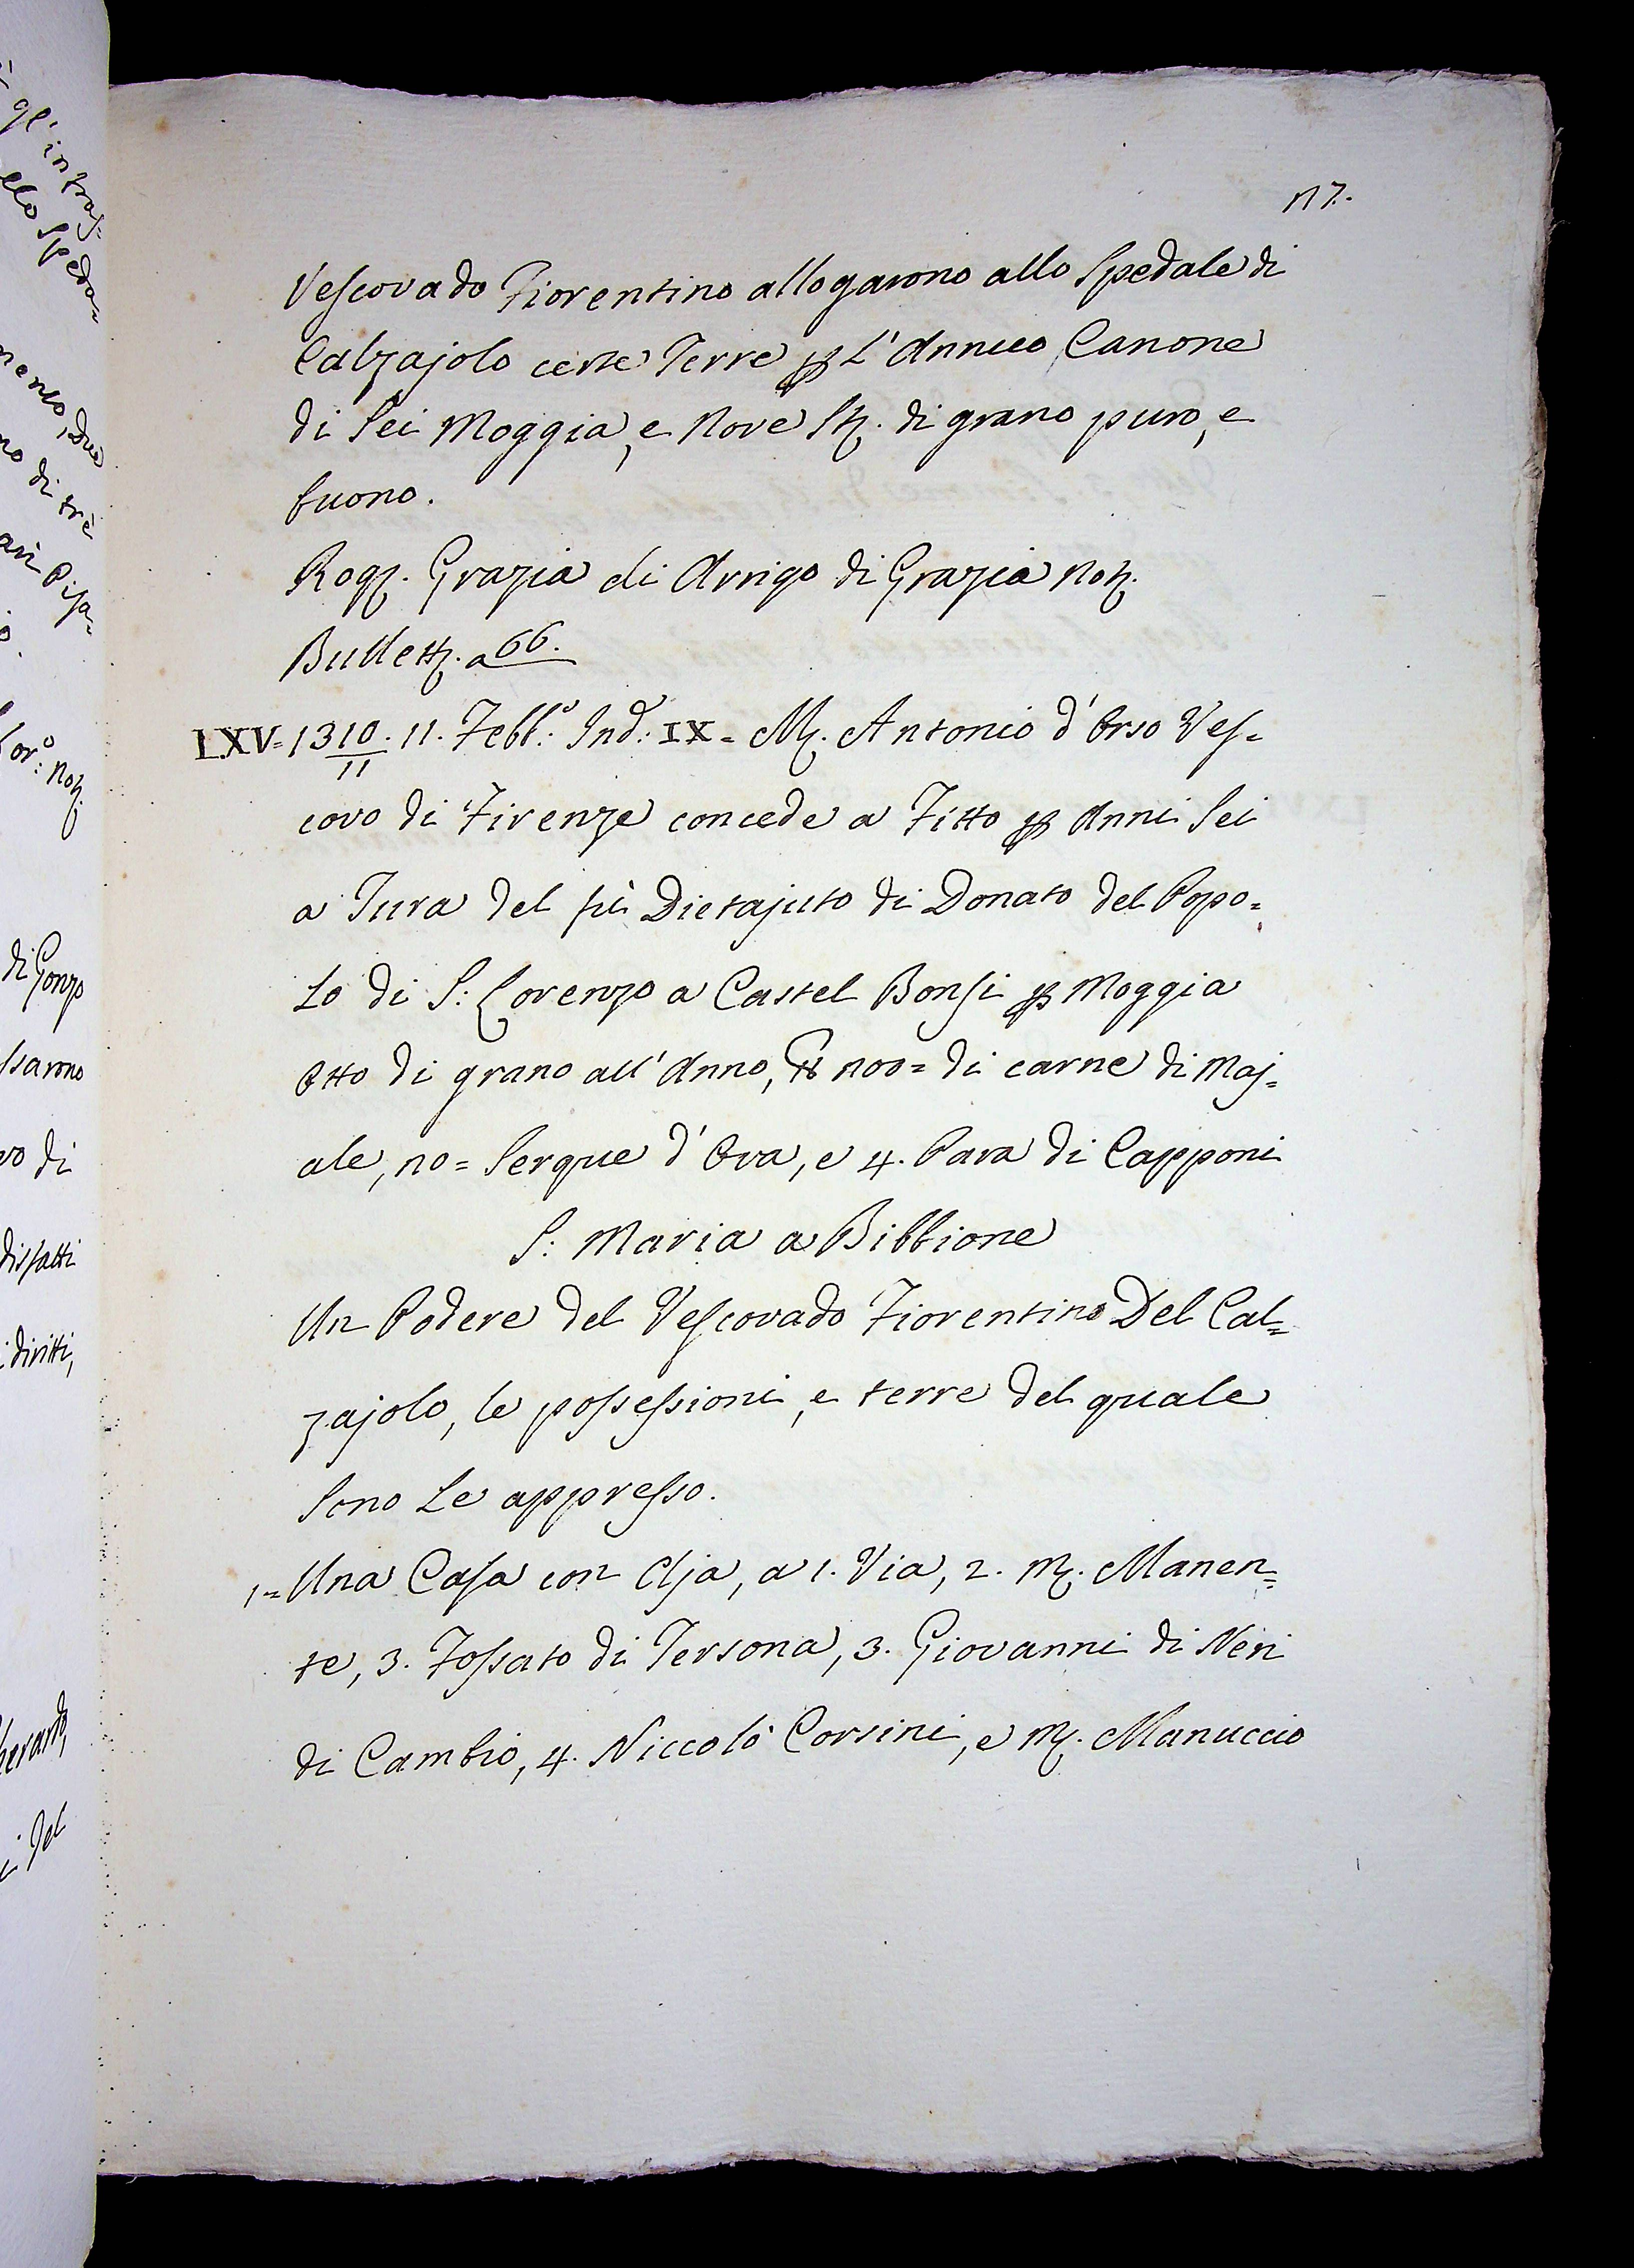 117.
Vescovado Fiorentino allogarono allo Spedale di
Calzajolo certe Terre ꝑ L'Annuo Canone
di Sei Moggia, e Nove St. di grano puro, e
buono.
Rog. Grazia di Arrigo di Grazia Not.
Bullett. a 66.
LXV= 1310/11. 11. Febb.º Ind: IX= M. Antonio d'Orso Ves=
covo di Firenze concede a Fitto ꝑ Anni Sei
a Tura del fù Dietajuto di Donato del Popo=
Lo di S: Lorenzo a Castel Bonsi ꝑ Moggia
Otto di grano all'Anno, 100= di carne di Maj=
ale, 10= Serque d'Ova, e 4. Para di Capponi
S: Maria a Bibbione
Un Podere del Vescovado Fiorentino Del Cal=
zajolo, le possessioni, e terre del quale
Sono Le appresso.
1= Una Casa con Aja, a 1. Via, 2. M. Manen=
te, 3. Fossato di Tersona, 3. Giovanni di Neri
di Cambio, 4. Niccolò Corsini, e M. Manuccio
di Gonzo
dissatti
diritti,